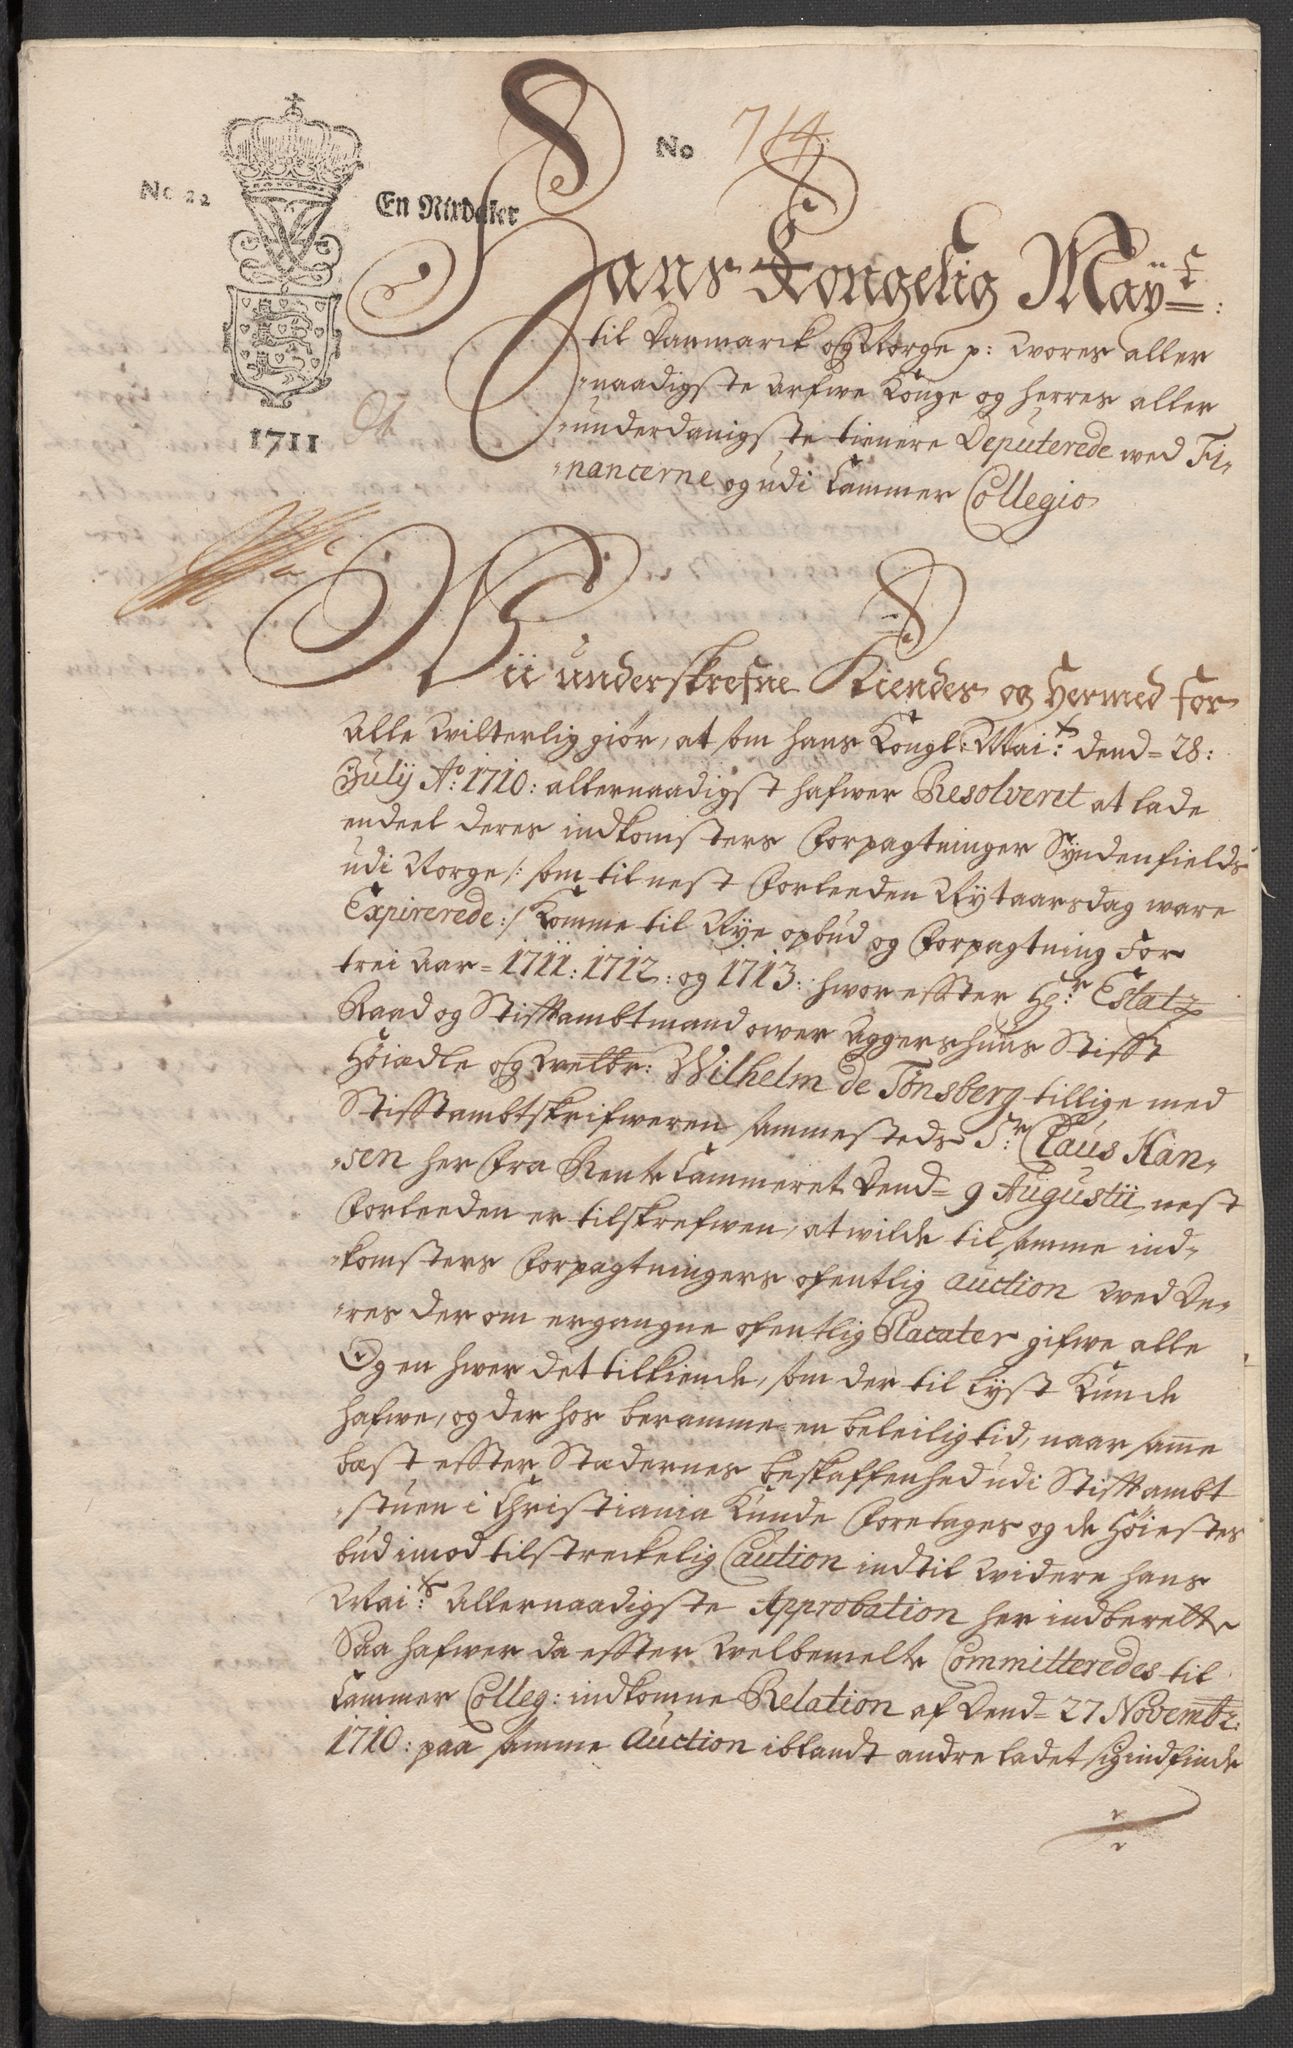 No 22
En Rixdaler
No 714
1711
Hans Kongelig Mayt:
til Danmarck og Norge p: wores aller
naadigste Arfwe Konge og Herres aller
underdanigste tienere Deputerede wed Fi-
nancerne og udi Cammer Collegio
Wii underskrefne Kiendes og Hermed for
Alle witterlig giør, at som hans Kongl: Mai:ts dend 28:
Julij Ao: 1710: allernaadigst hafwer Resolveret at lade
endeel deres indkomsters Forpagtninger Syndenfields
udi Norge /: som til nest forleeden Nytaarsdag ware
Expirerede :/ Komme til Nye opbud og Forpagtning For
trei Aar 1711: 1712: og 1713: hwor effter Hr: Estatz
Raad og Stifftambtmand ower Aggershuus Stifft
Høiædle og Welbr: Wilhelm de Tonsberg tillige med
Stifftambtskrifweren sammesteds Sr: Claus Han-
sen her fra Rente Cammeret Dend 9 Augustii nest
forleeden er tilskrefwen, at wilde til samme ind-
komsters Forpagtningers ofentlig Auction wed De-
res der om ergangne ofentlig Placater gifwe alle
Og en hwer det tilkiende, som der til Lyst Kunde
hafwe, og der hos beramme en beleilig tid, naar same
best effter Stædernes beskaffenhed udi Stifftambt
stuen i Christiania Kunde Foretages og de Høiestes
bud imod tilstreckelig Caution indtil widere hans
Mai:ts Allernaadigste Approbation her indberette
Saa hafwer da effter welbemelte Committeredes til
Cammer Colleg: indkomne Relation af Dend 27 Novembr:
1710: paa samme Auction iblandt andre ladet sig indfinde